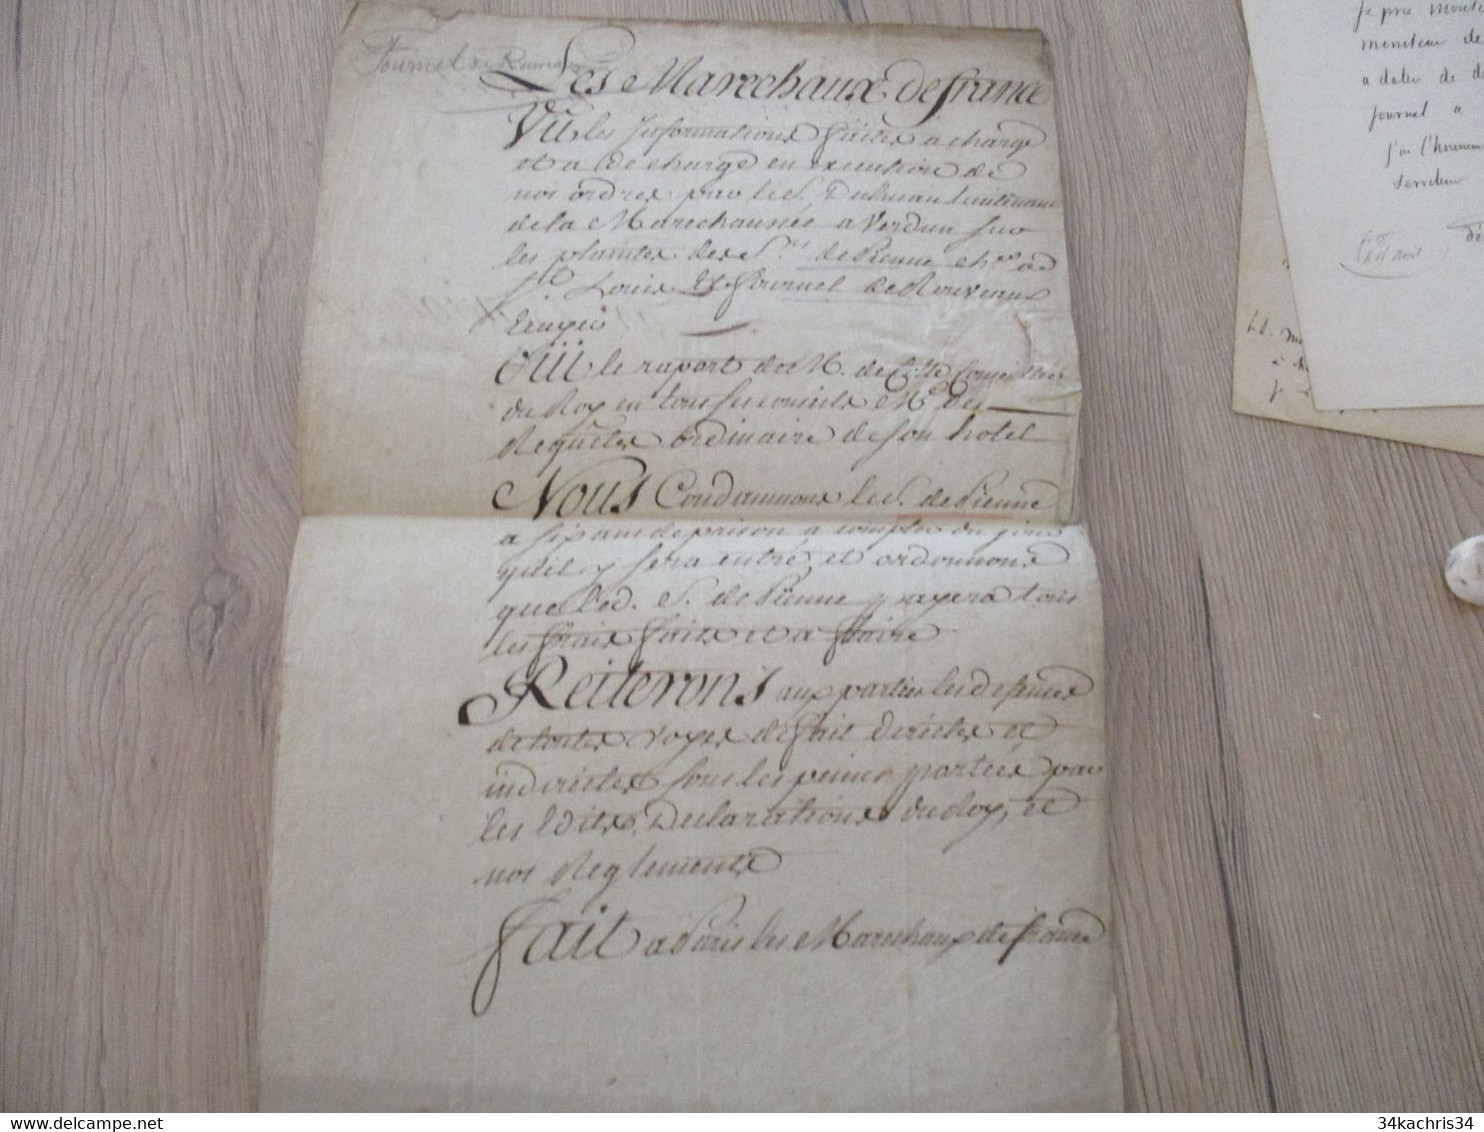 Fournel de Rouveaux
Les Marechaux de france
Vû les Informations faites a charge
et a decharge en execution de
nos ordres par le S. Lieutenant
de la Marechaussée a Verdun sur
les plaintes des Srs de Pienne cher de
St Louis Et fournel de Rouveaux
Ecuyer
Oüi le raport de M. de Conseiller
du Roy en tous ses conseils Me des
Requêtes ordinaire de son hotel
Nous Condamnons le S. de Pienne
a six ans de prison a compter du jour
quil y sera entré et ordonnons
que led. S. de Pienne payera tous
les frais faits et a faire
Reiterons aux parties les defenses
de toutes voyes de fait directes et
indirectes sous les peines portées par
les Edits, Declarations du Roy, et
nos Reglements
Fait a Paris les Marechaux de france
je prie
moniteur de
a dater de
journal a
j'ai l'honneur
serviteur
34kachris34
34kachris34